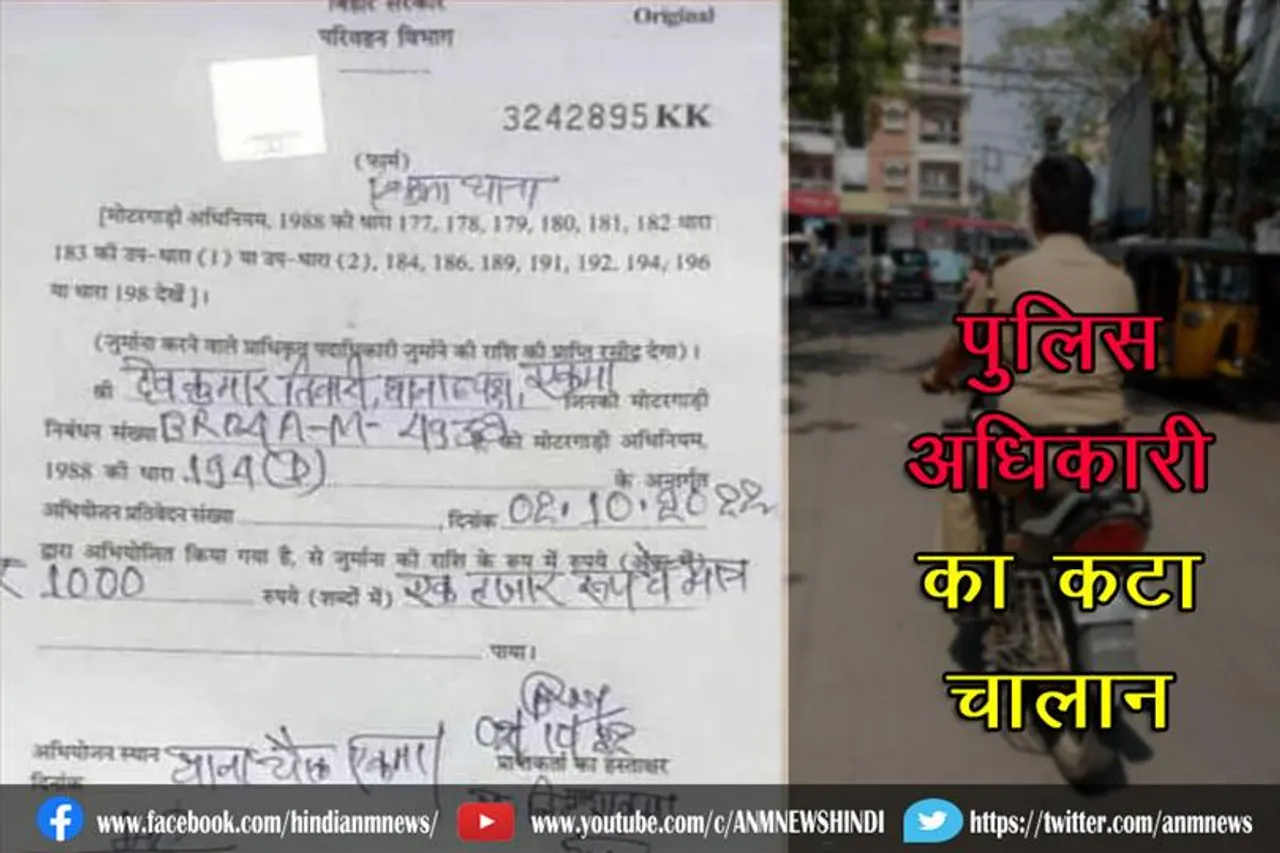 बिहार सरकार
Original
परिवहन विभाग
3242895 KK
(फार्म)
एकमा थाना
[मोटरगाड़ी अधिनियम, 1988 की धारा 177, 178, 179, 180, 181, 182 धारा
183 की उप-धारा (1) या उप-धारा (2), 184, 186, 189, 191, 192, 194, 196
या धारा 198 देखें]।
(जुर्माना करने वाले प्राधिकृत पदाधिकारी जुर्माने की राशि की प्राप्ति रसीद देगा)।
श्री देवकुमार तिवारी, थानाध्यक्ष, एकमा जिनकी मोटरगाड़ी
निबंधन संख्या BR04A-M- को मोटरगाड़ी अधिनियम,
1988 की धारा 194(D) के अन्तर्गत
अभियोजन प्रतिवेदन संख्या , दिनांक 02.10.2022
द्वारा अभियोजित किया गया है, से जुर्माना की राशि के रूप में रुपये
1000 रुपये (शब्दों में) एक हजार रूपये मात्र
पाया।
अभियोजन स्थान थाना चौक एकमा
प्राप्तिकर्ता का हस्ताक्षर
दिनांक
पुलिस
अधिकारी
का कटा
चालान
www.facebook.com/hindianmnews/
www.youtube.com/c/ANMNEWSHINDI
https://twitter.com/anmnews